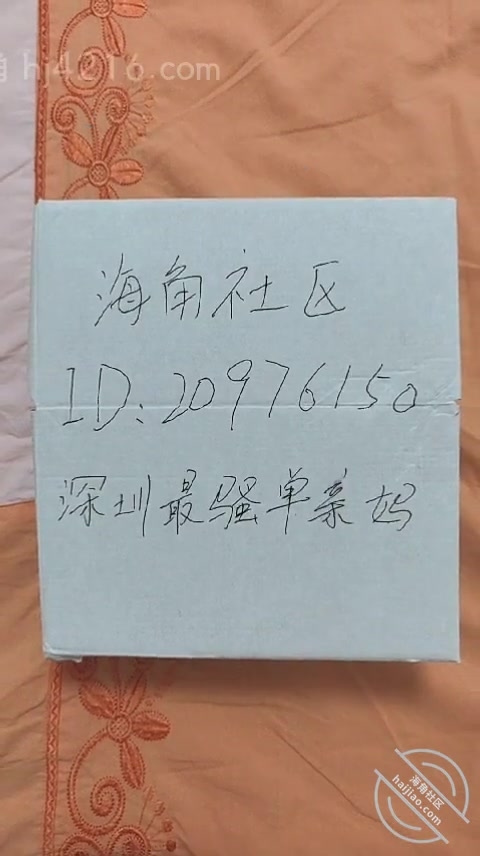 角 hj4216.com
海角社区
ID:20976150
深圳最骚单亲妈
海角社区
haijiao.com